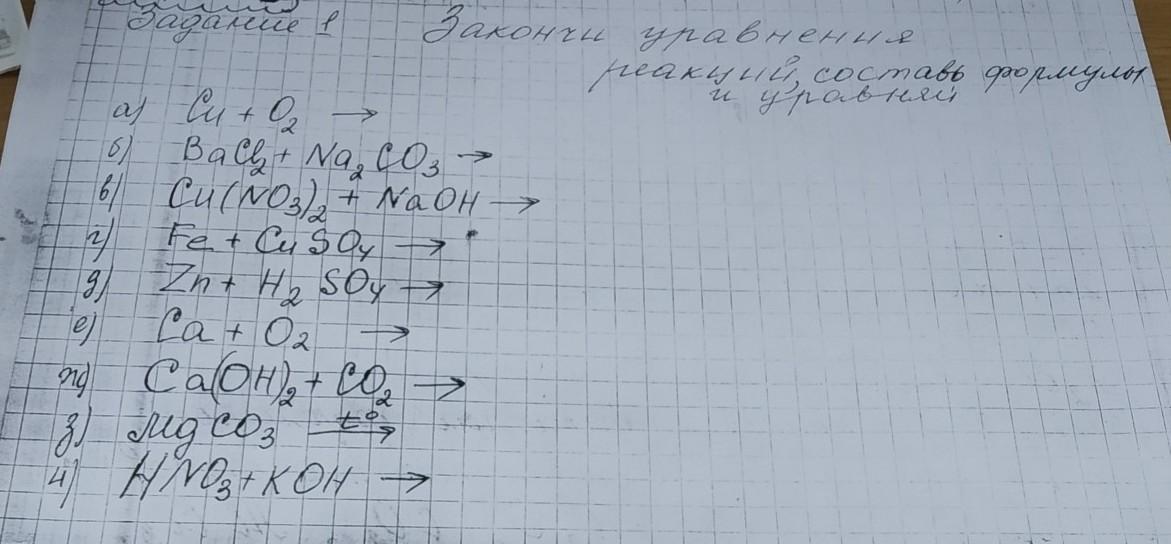 Задание 1 Закончи уравнения
реакций, составь формулы
и уравняй
а) Cu + O₂ →
б) BaCl₂ + Na₂CO₃ →
в) Cu(NO₃)₂ + NaOH →
г) Fe + CuSO₄ →
д) Zn + H₂SO₄ →
е) Ca + O₂ →
ж) Ca(OH)₂ + CO₂ →
з) MgCO₃ t° →
и) HNO₃ + KOH →